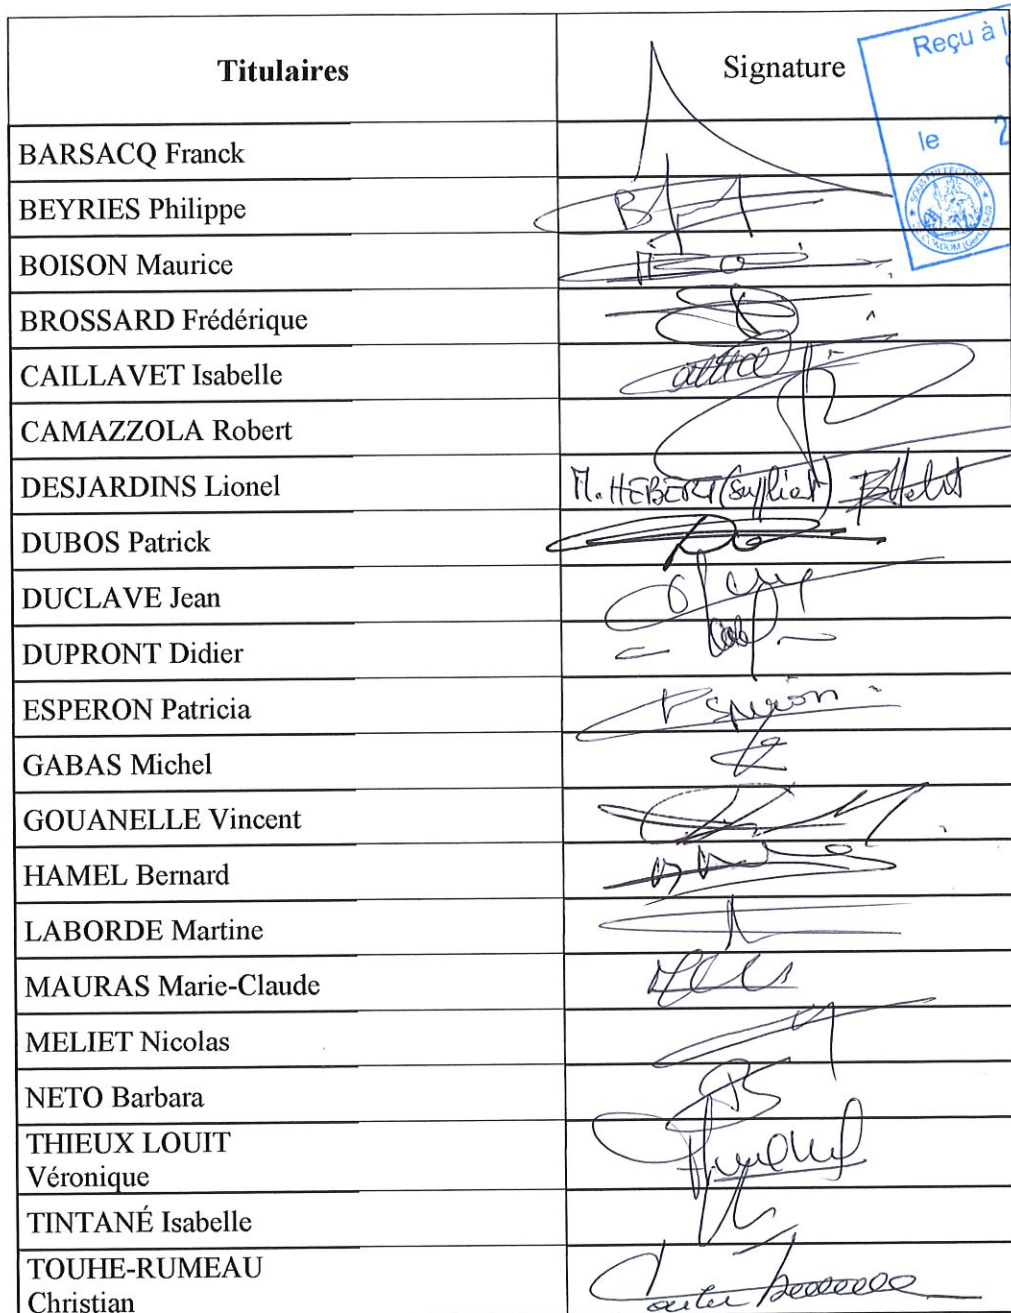 Titulaires
Signature
Reçu à
le 2
BARSACQ Franck
BEYRIES Philippe
BOISON Maurice
BROSSARD Frédérique
CAILLAVET Isabelle
CAMAZZOLA Robert
DESJARDINS Lionel
M. HEBERT
DUBOS Patrick
DUCLAVE Jean
DUPRONT Didier
ESPERON Patricia
GABAS Michel
GOUANELLE Vincent
HAMEL Bernard
LABORDE Martine
MAURAS Marie-Claude
MELIET Nicolas
NETO Barbara
THIEUX LOUIT
Véronique
TINTANÉ Isabelle
TOUHE-RUMEAU
Christian